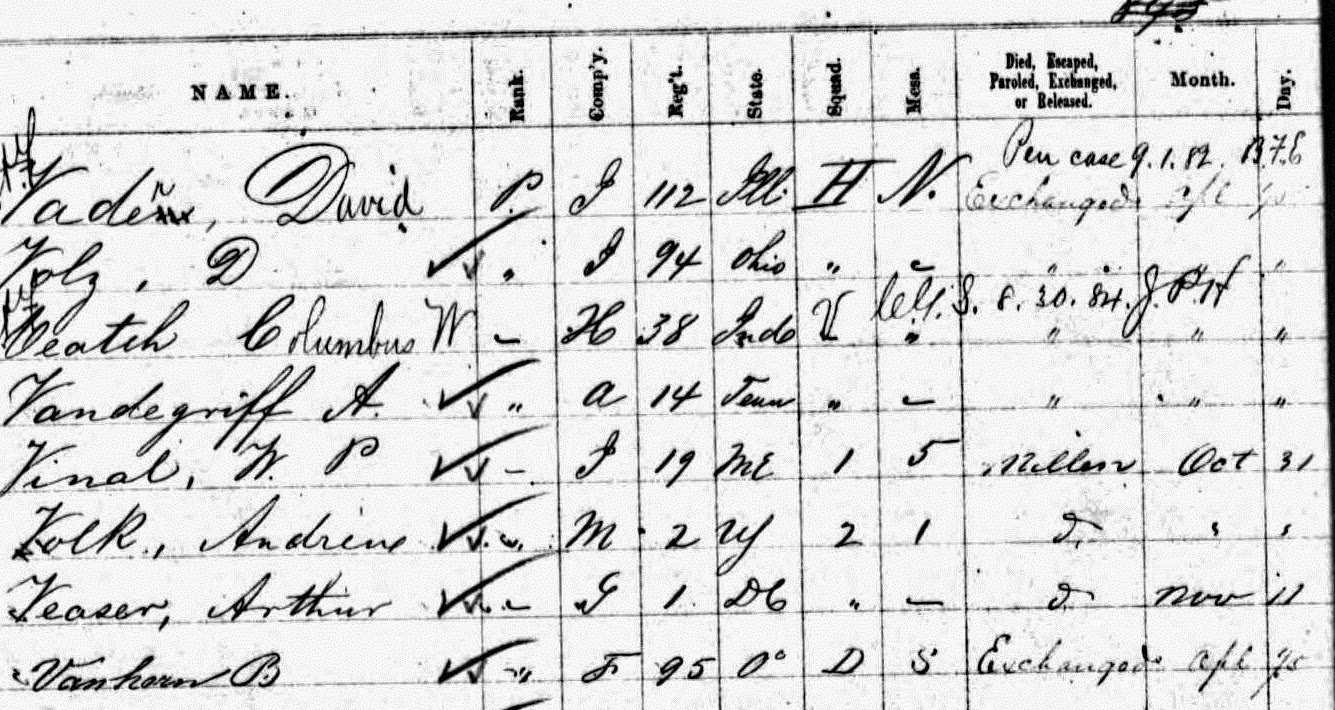 NAME. Rank. Comp'y. Reg't. State. Squad. Mess. Died, Escaped, Paroled, Exchanged, or Released. Month. Day.
Pen case 9.1.82. B.F.E
Vaden, David P. I 112 Ill. H N. Exchanged Apl
Volz, D " I 94 Ohio " " " "
S. 8.30.84. J.P.H
Veatch Columbus W H 38 Inda V " " " "
Vandegriff A. " A 14 Tenn " " " "
Vinal, W. P I 19 ME 1 5 Millen Oct 31
Volk, Andrew M 2 2 1
Veaser, Arthur G 1 DC " Nov 11
Vanhorn B " F 95 O° D 5 Exchanged Apl